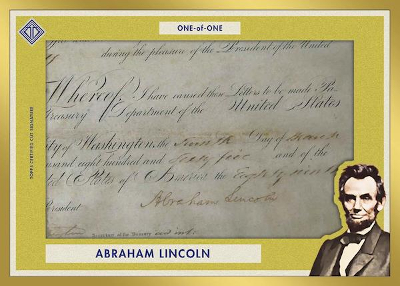 ONE-of-ONE
during the pleasure of the President of the United
Whereof, I have caused these Letters to be made Pa
Treasury Department of the United States
ty of Washington, the Day of March
sand eight hundred and Sixty five and of the
ed States of America the Eighty ninth
resident
Abraham Lincoln
Secretary of the Treasury
TOPPS CERTIFIED CUT SIGNATURE
ABRAHAM LINCOLN